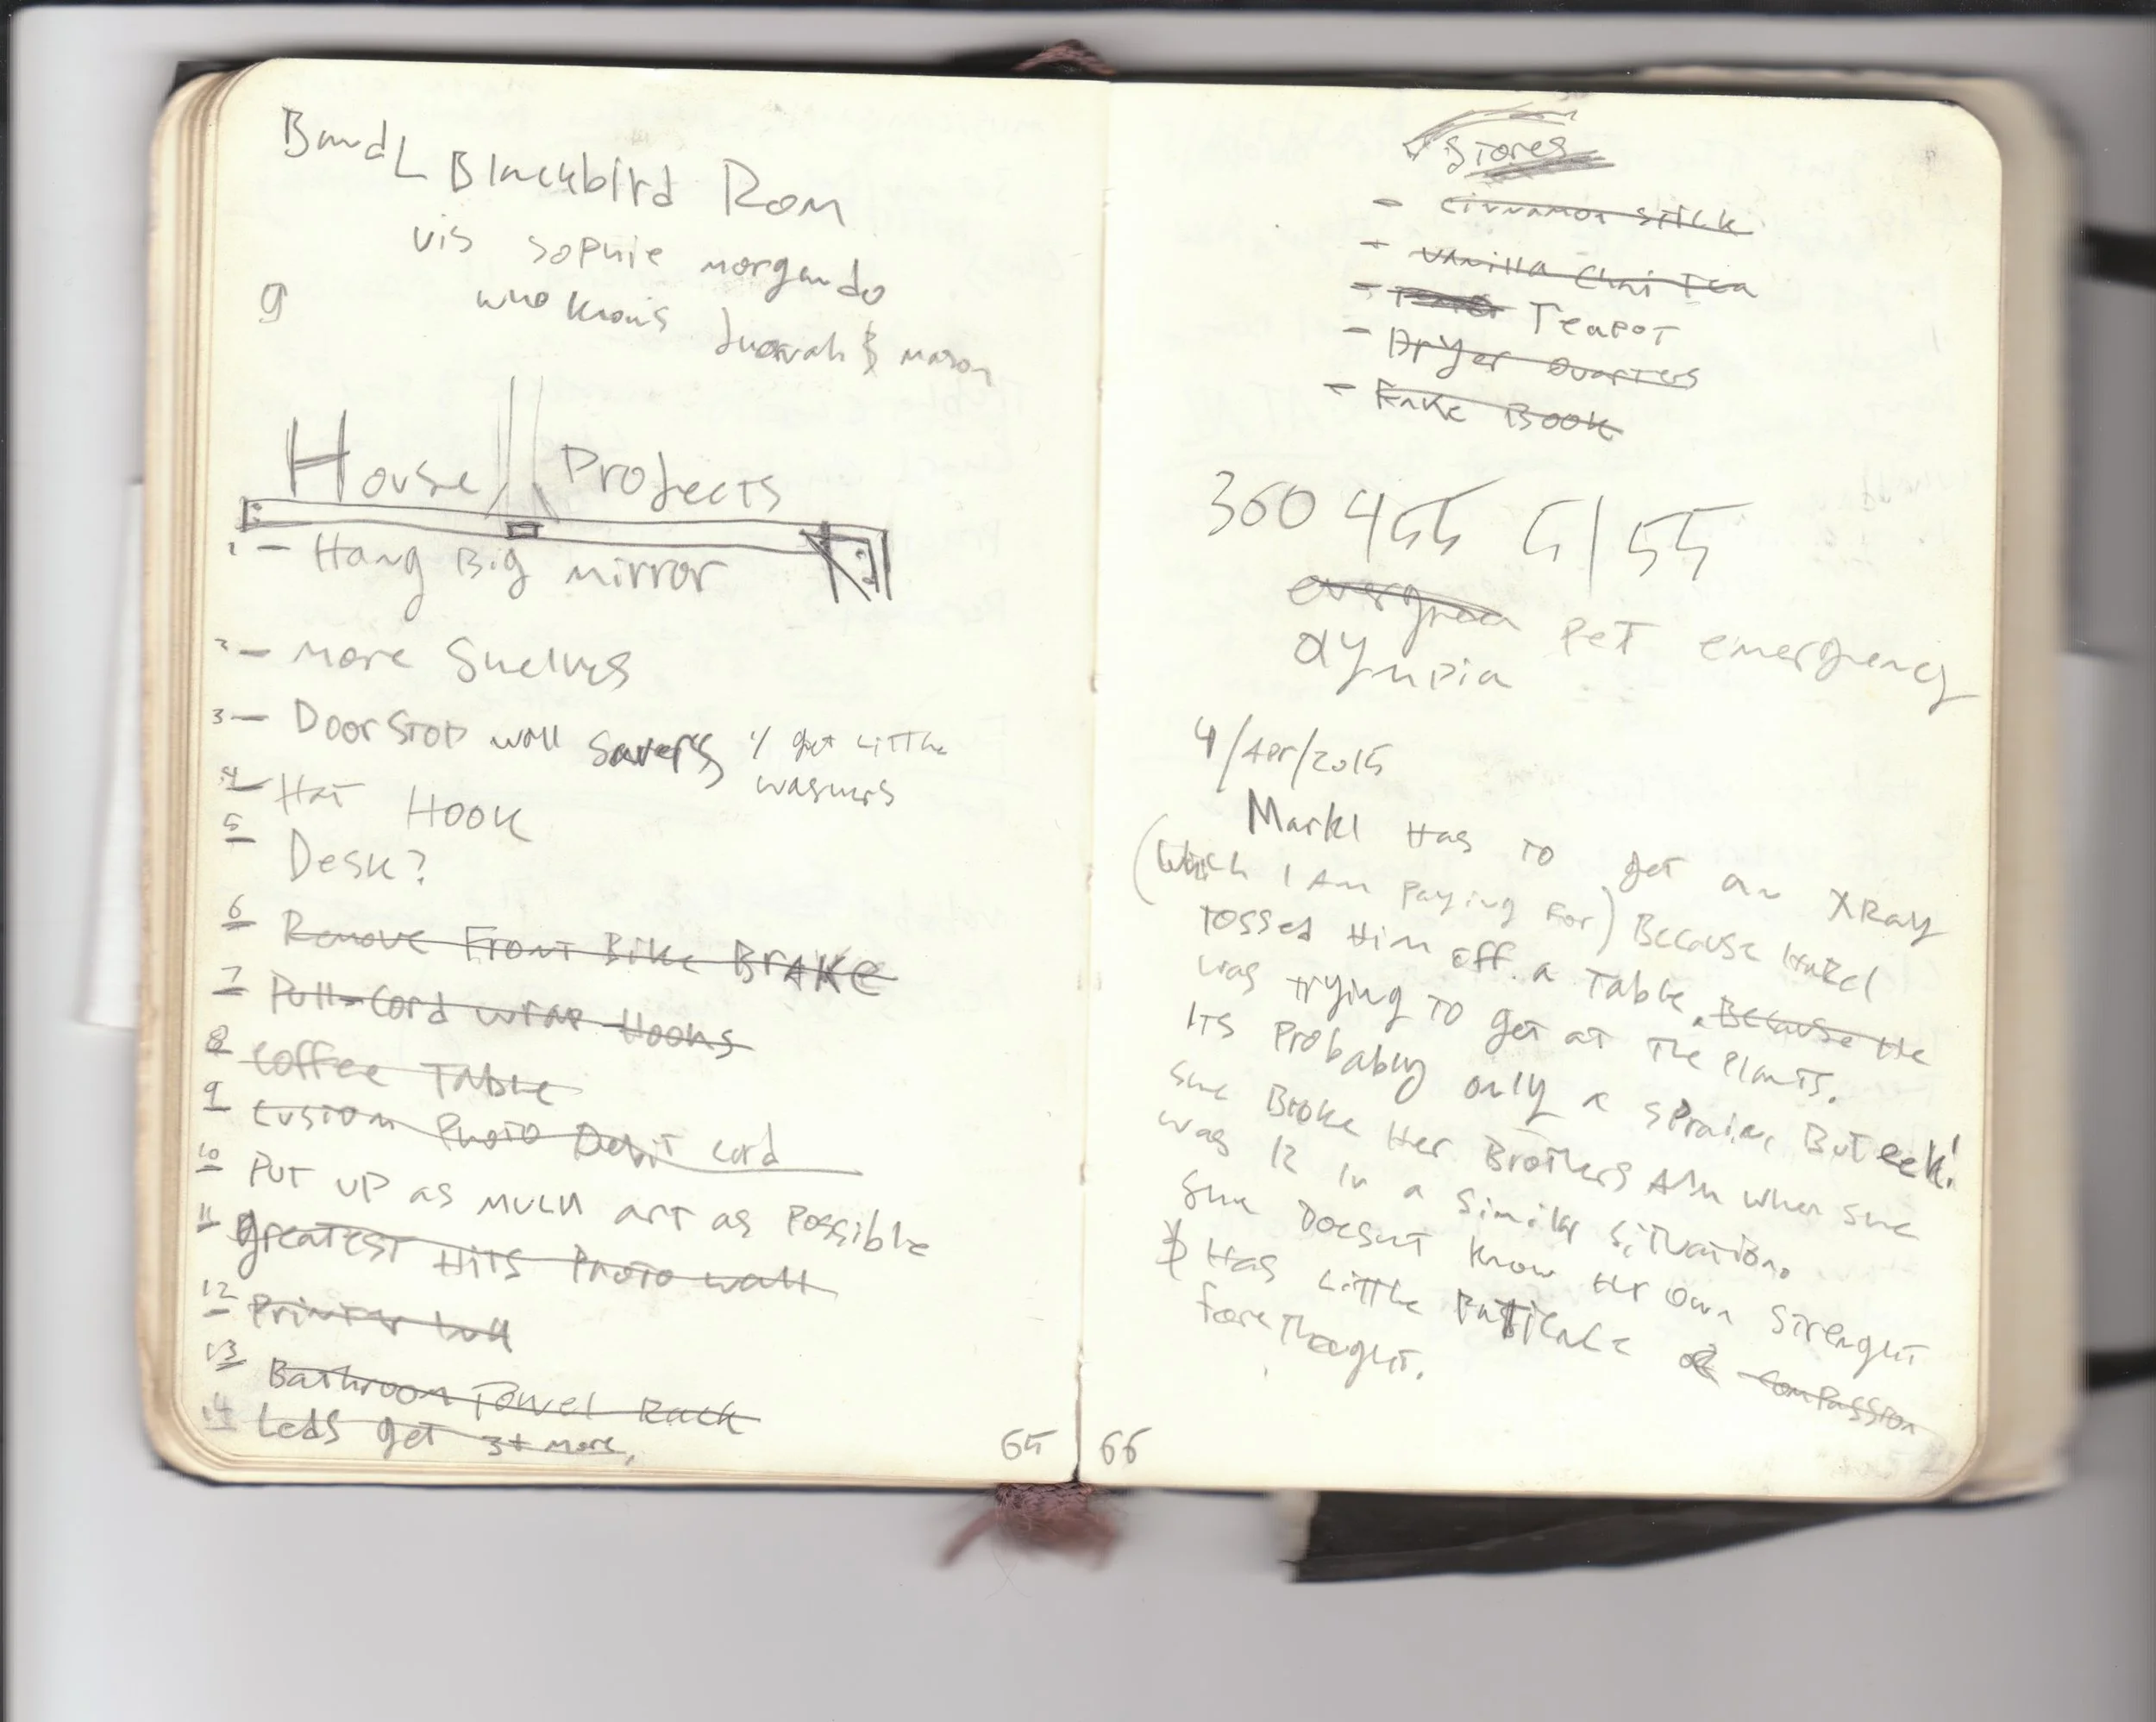 BandL Blackbird Rom
vis Sophie morgando
who knows & mason
g
House Projects
1 - Hang Big mirror
2 - more Shelves
3 - DoorStop wall Savers get Little
washers
4 - Hat Hook
5 Desk?
6 Remove Front Bike BrAKe
7 Pull-Cord wrap Hooks
8 Coffee Table
9 Custom Photo Debit card
10 Put up as much art as Possible
11 greatest Hits Photo wall
12 Printer
13 Bathroom Towel Rack
14 Leds get 3+ more,
65
Stores
- cinnamon stick
- vanilla Chai Tea
- Teapot
- Dryer Quarters
- Fake Book
360 455 5155
evergreen Pet emergency
olympia
4/Apr/2015
Markl Has to get an XRay
(Which I Am Paying For) Because
tossed Him off a Table. Because He
was trying to get at The Plants.
Its Probably only a sprain, But eek!
she Broke Her Brothers Arm when she
was 12 in a similar situation.
She Doesnt know Her own Strenght
& Has Little Patience or compassion
forethought.
66